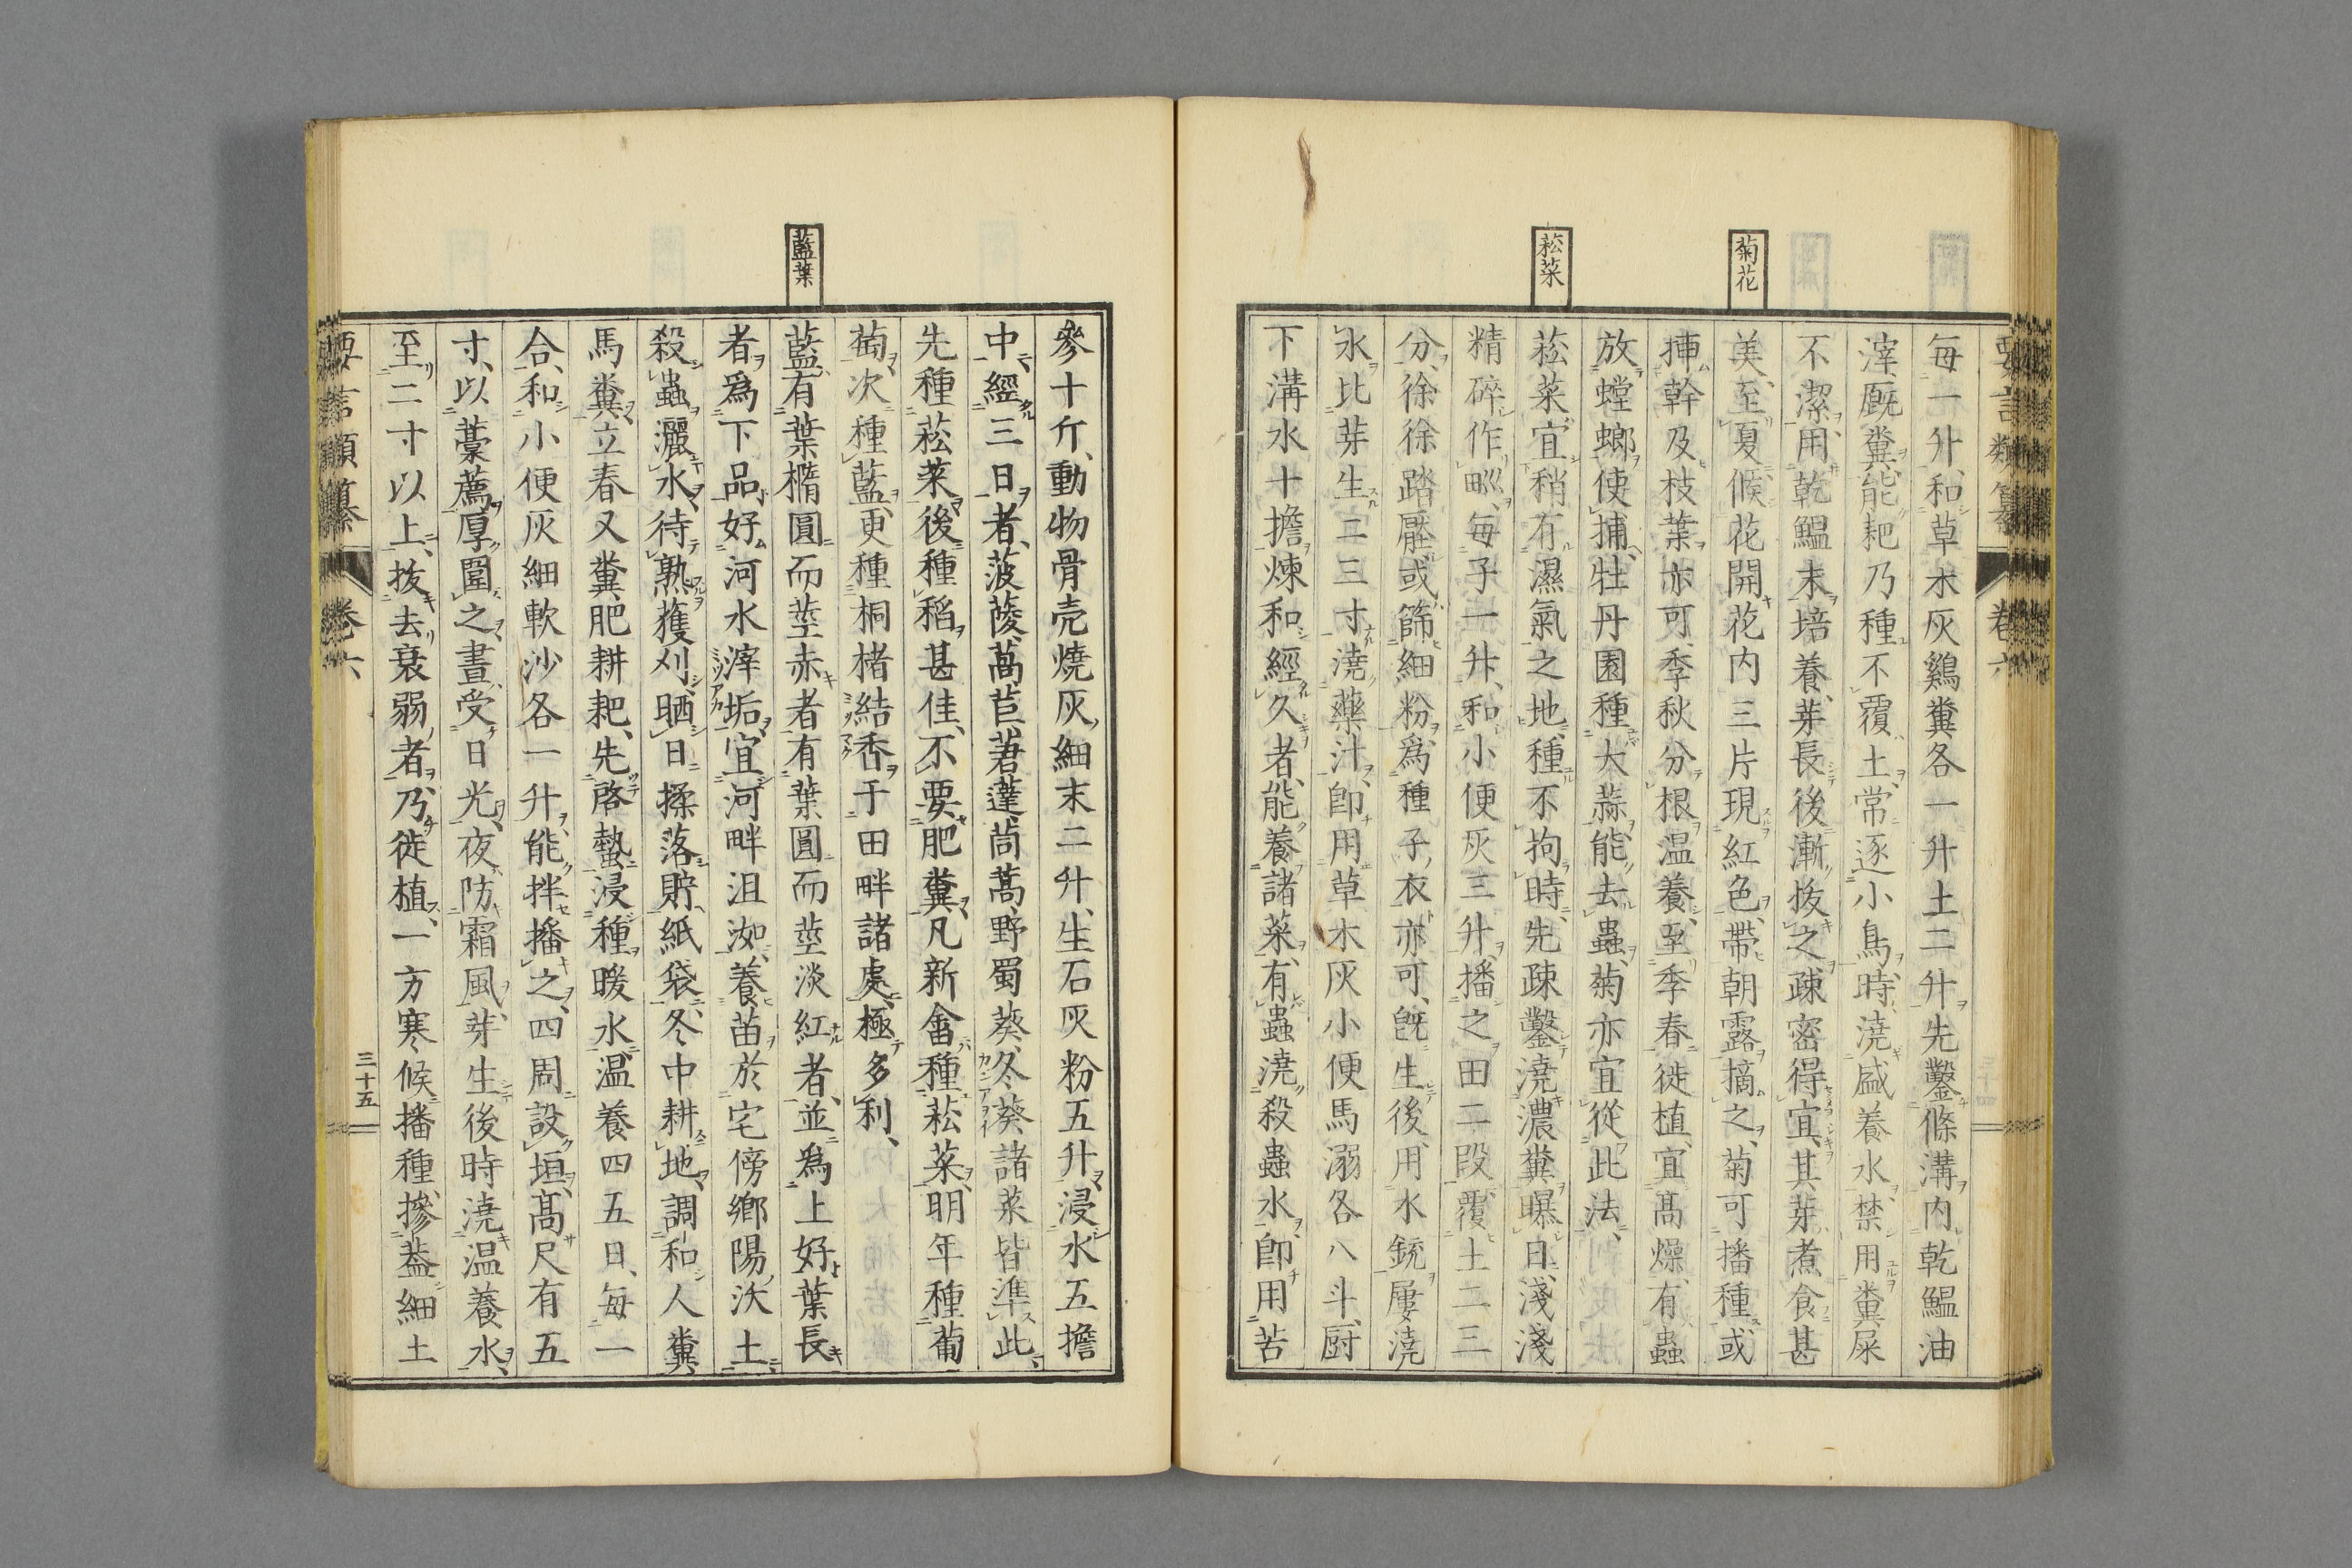 菊花
菘菜
每一升、和草木灰鷄糞各一升土二升先鑿條溝内乾鰮油
滓、厩糞能耙乃種不覆土、常逐小鳥、時澆盛養水、禁用糞屎
不潔、用乾鰮末培養、芽長後漸拔之疎密得宜、其芽煮食甚
美、至夏候花開花内三片現紅色、帶朝露摘之、菊可播種、或
挿幹及枝葉亦可、季秋分根温養、至季春徙植、宜髙燥、有蟲
放螳螂使捕、牡丹園種大蒜能去蟲、菊亦宜從此法、
菘菜、宜稍有濕氣之地、種不拘時、先疎鑿澆濃糞曝日、淺淺
精碎作畝、每子一升、和小便灰三升、播之田二段、覆土二三
分、徐徐踏壓、或篩細粉、爲種子衣亦可、既生後、用水銃屢澆
水、比芽生二三寸、澆藥汁、卽用草木灰小便馬溺各八斗、厨
下溝水十擔煉和經久者、能養諸菜、有蟲澆殺蟲水、卽用苦
要言類纂 卷六
藍葉
參十斤、動物骨壳燒灰細末二升、生石灰粉五升、浸水五擔
中、經三日者、菠薐、萵苣、莙薘、茼蒿、野蜀葵、冬葵諸菜皆準此、
先種菘菜、後種稻甚佳、不要肥糞、凡新畬種菘菜、明年種葡
萄、次種藍、更種桐楮結香于田畔諸處、極多利、
藍、有葉橢圓而莖赤者有葉圓而莖淡紅者、並爲上好、葉長
者爲下品、好河水滓垢、宜河畔沮洳、養苗於宅傍鄉陽沃土、
殺蟲灑水、待熟獲刈、晒日揉落、貯紙袋、冬中耕地、調和人糞、
馬糞、立春又糞、肥耕耙、先啓蟄浸種暖水、温養四五日、每一
合、和小便灰細軟沙各一升、能拌播之、四周設垣、髙尺有五
寸、以藁薦厚圍之、晝受日光、夜防霜風、芽生後時澆温養水、
至二寸以上、拔去衰弱者、乃徙植、一方寒候播種、摻葢細土
要言類纂 卷六 三十五